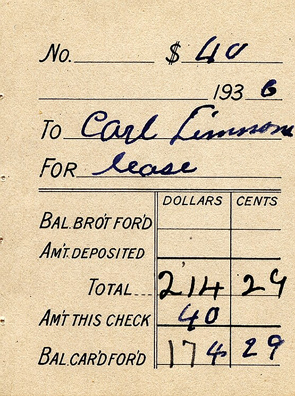 No. $ 40
193 6
To Carl Timmons
For lease
DOLLARS CENTS
BAL. BRO'T FOR'D
AM'T. DEPOSITED
TOTAL 214 29
AM'T THIS CHECK 40
BAL. CAR'D FOR'D 174 29